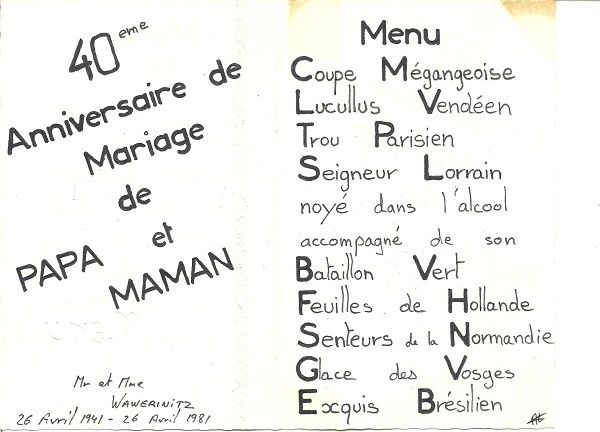 40eme
Anniversaire de
Mariage
de
PAPA et
MAMAN
Mr et Mme
WAWERINITZ
26 Avril 1941 - 26 Avril 1981
Menu
Coupe Mégangeoise
Lucullus Vendéen
Trou Parisien
Seigneur Lorrain
noyé dans l'alcool
accompagné de son
Bataillon Vert
Feuilles de Hollande
Senteurs de la Normandie
Glace des Vosges
Excquis Brésilien